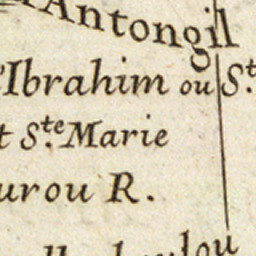 Antongil
Ibrahim ou S.t
S.te Marie
urou R.